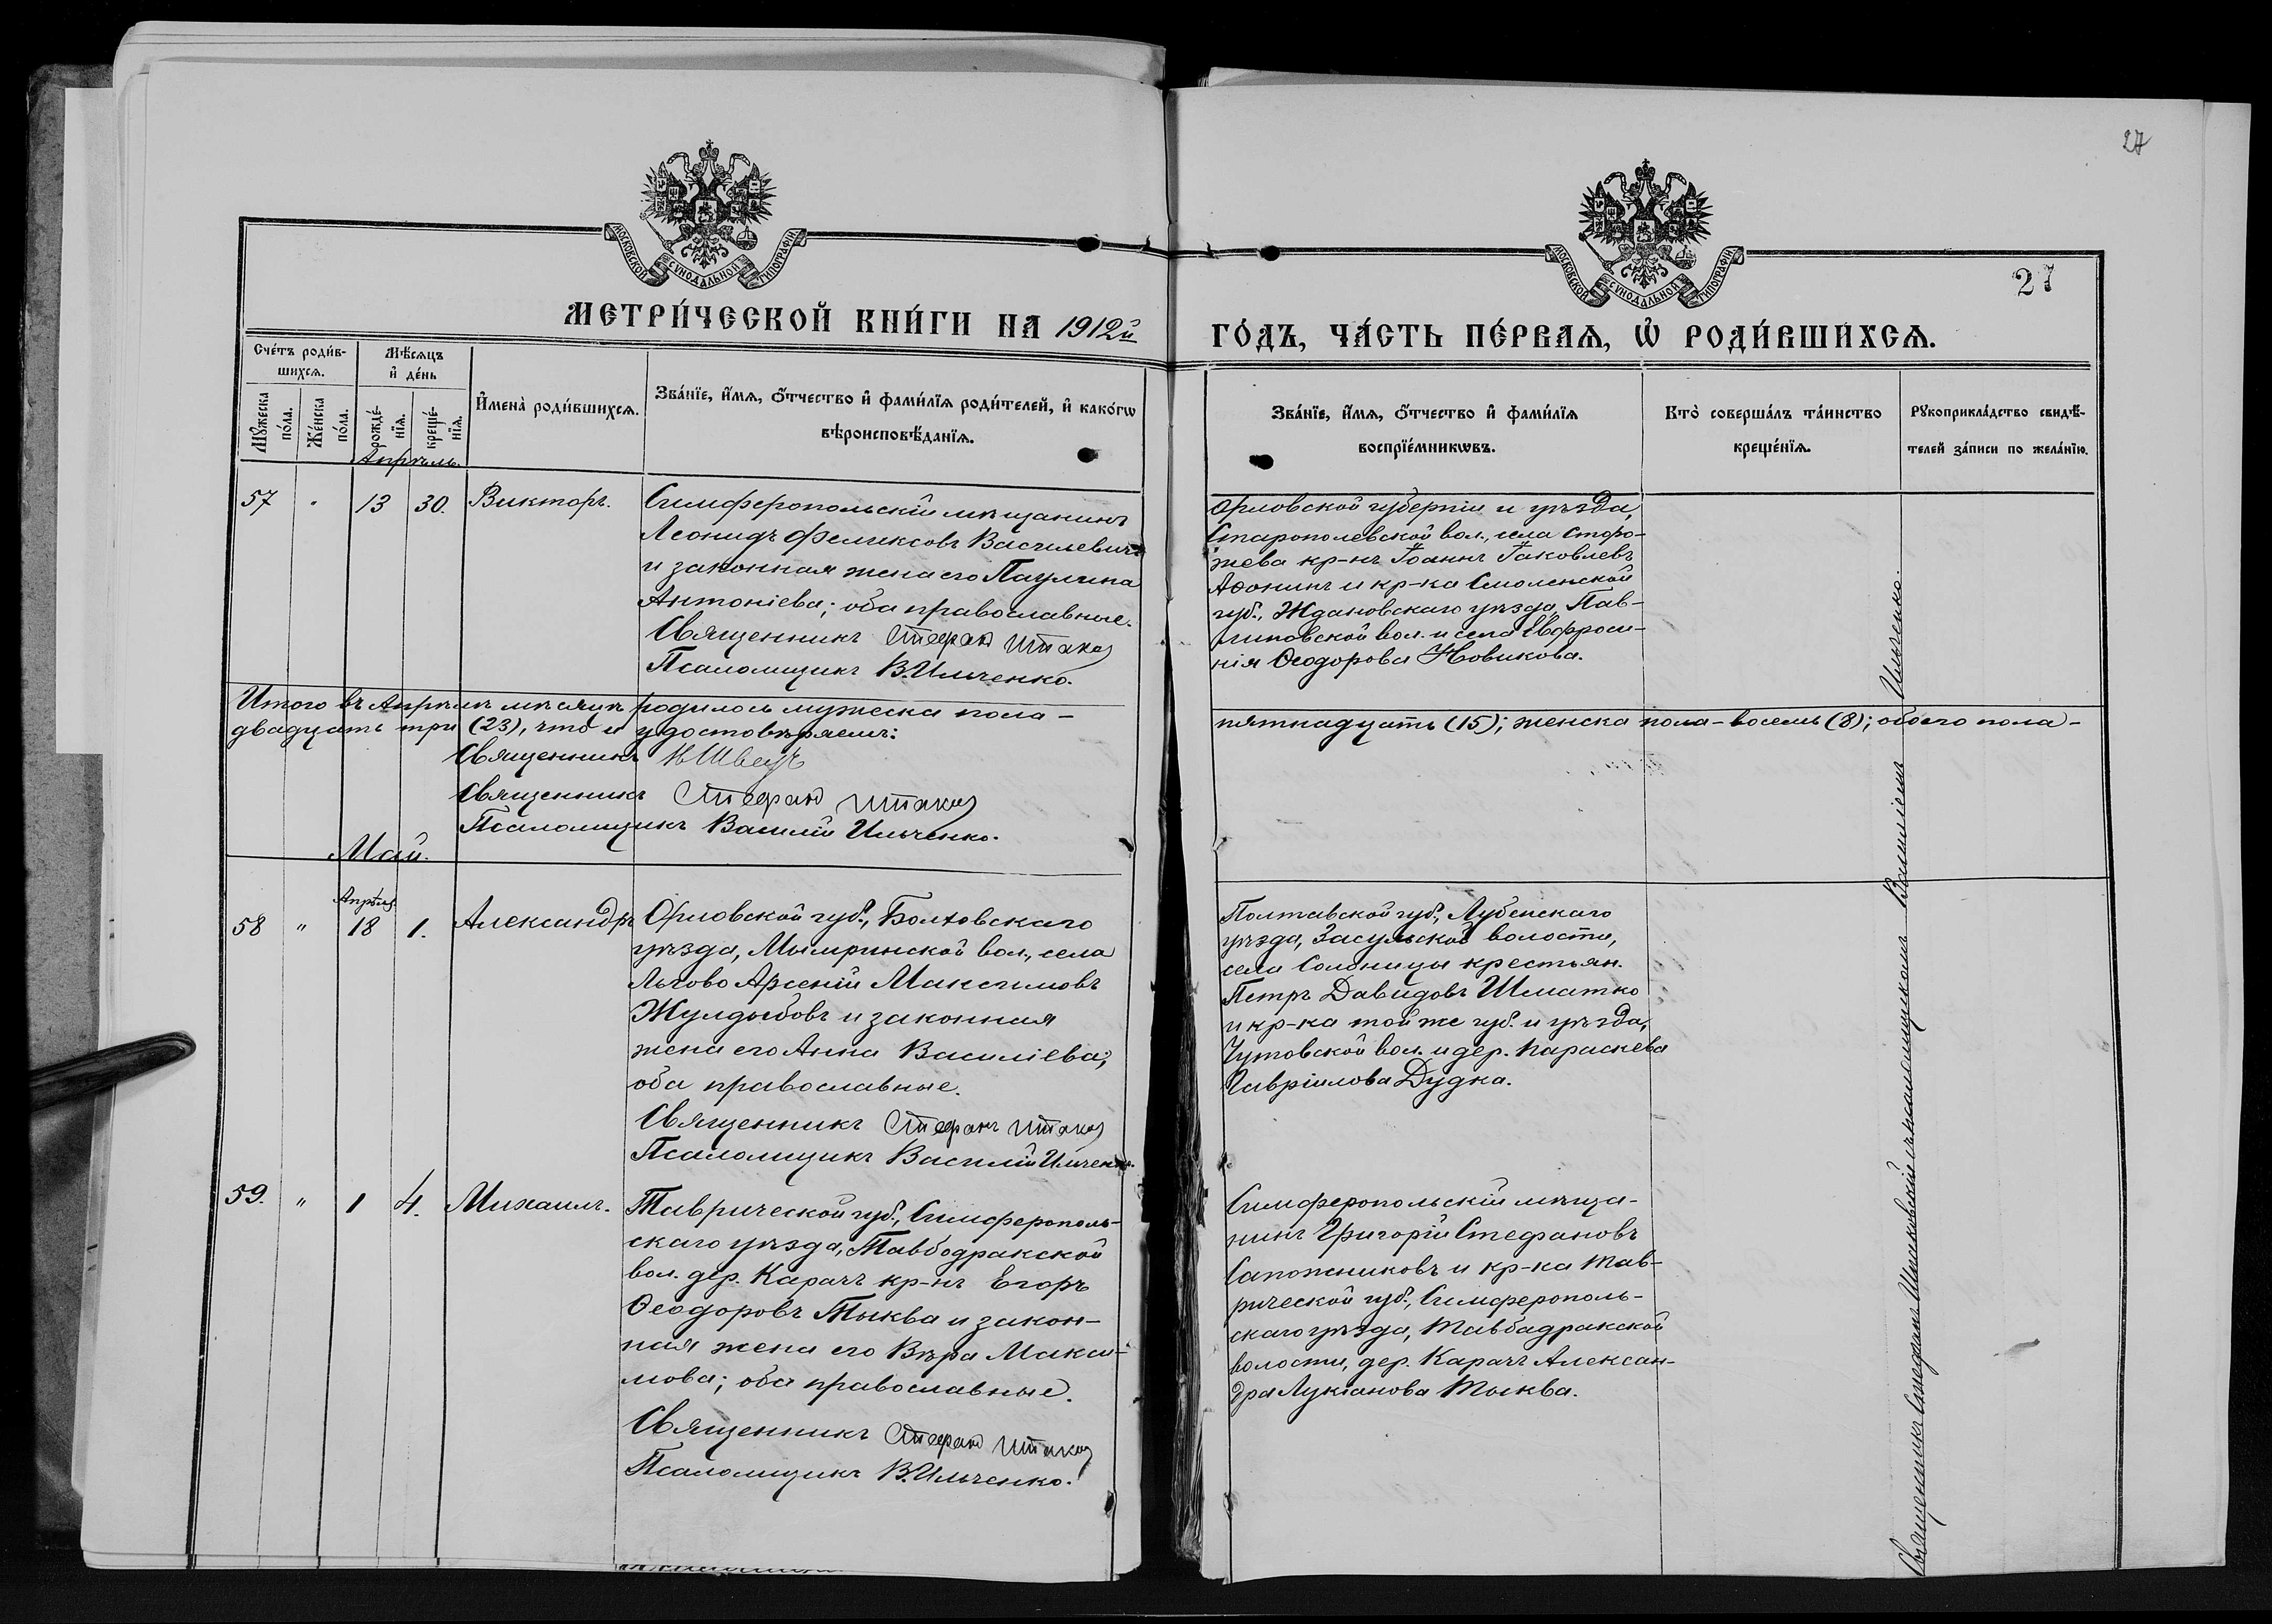 27
МОСКОВСКОЙ СѴНОДАЛЬНОЙ ТИПОГРАФІИ
МОСКОВСКОЙ СѴНОДАЛЬНОЙ ТИПОГРАФІИ
27
МЕТРИ́ЧЕСКОЙ КНИ́ГИ НА 1912й
ГО́ДЪ, ЧА́СТЬ ПЕ́РВАѦ, Ѡ РОДИ́ВШИХСѦ.
Сче́тъ роди́в-
шихсѧ.
Мѣ́сѧцъ
и де́нь
Мꙋ́жеска
по́ла.
Же́нска
по́ла.
рожде́-
нїѧ.
креще́-
нїѧ.
И҆мена̀ роди́вшихсѧ.
Зва́нїе, и҆́мѧ, ѻ҆́тчество и҆ фами́лїѧ роди́телей, и҆ како́гѡ
вѣроисповѣ́данїѧ.
Зва́нїе, и҆́мѧ, ѻ҆́тчество и҆ фами́лїѧ
воспрїе́мникѡвъ.
Кто̀ соверша́лъ та́инство
креще́нїѧ.
Рꙋкоприкла́дство свидѣ́-
телей за́писи по жела́нїю.
Апрѣль.
57 " 13 30. Викторъ.
Симферопольскій мѣщанинъ
Леонидъ Феликсовъ Василевичъ
и законная жена его Паулина
Антоніева; оба православные.
Священникъ Стефан Штака
Псаломщикъ В. Ильченко.
Орловской губерніи и уѣзда,
Старополевской вол., села Сторо-
жева кр-нъ Іоаннъ Іаковлевъ
Аѳонинъ и кр-ка Смоленской
губ., Ждановскаго уѣзда, Пав-
линовской вол. и села Евфроси-
нія Ѳеодорова Новикова.
Итого въ Апрѣлѣ мѣсяцѣ родилось мужеска пола –
пятнадцать (15); женска пола – восемь (8); обоего пола –
двадцать три (23), что и удостовѣряемъ:
Священникъ Н Швецъ
Священникъ Стефан Штака
Псаломщикъ Василій Ильченко.
Май.
Апрѣля
58 " 18 1. Александръ
Орловской губ., Болховскаго
уѣзда, Мымринской вол., села
Льгово Арсеній Максимовъ
Жулдыбовъ и законная
жена его Анна Василіева;
оба православные.
Священникъ Стефанъ Штака
Псаломщикъ Василій Ильченко.
Полтавской губ., Лубенскаго
уѣзда, Засульской волости,
села Солоницы крестьян.
Петръ Давидовъ Шматко
и кр-ка той же губ. и уѣзда,
Чутовской вол. и дер. Параскева
Гавріилова Дудка.
59. " 1 4. Михаилъ.
Таврической губ., Симферополь-
скаго уѣзда, Тавбодракской
вол. дер. Карачъ кр-нъ Егоръ
Ѳеодоровъ Тыква и закон-
ная жена его Вѣра Макси-
мова; оба православные.
Священникъ Стефан Штака
Псаломщикъ В. Ильченко.
Симферопольскій мѣща-
нинъ Григорій Стефановъ
Сапожниковъ и кр-ка Тав-
рической губ., Симферополь-
скаго уѣзда, Тавбадракской
волости, дер. Карачъ Алексан-
дра Лукіанова Тыква.
Священникъ Стефанъ Штаковскій съ псаломщикомъ Василіемъ Ильченко.